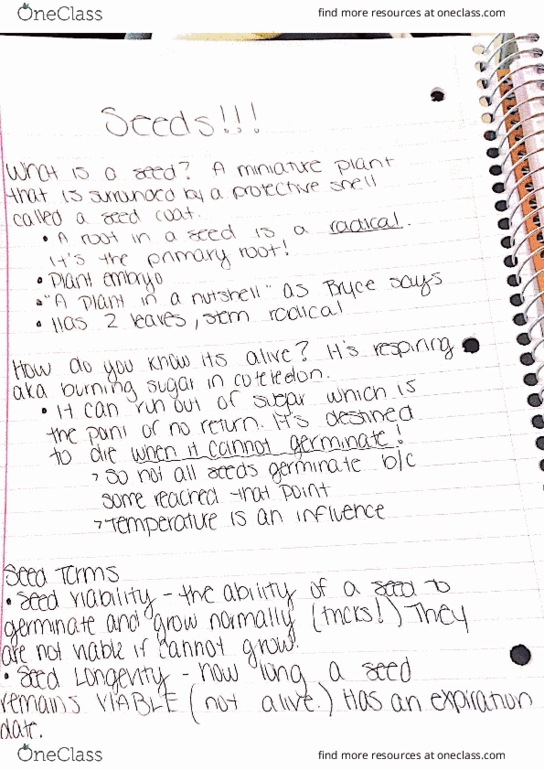 OneClass
find more resources at oneclass.com
Seeds!!!
What is a seed? A miniature plant
that is surrounded by a protective shell
called a seed coat.
• A root in a seed is a radical.
It's the primary root!
• Plant embryo
• "A plant in a nutshell" as Bryce says
• Has 2 leaves, stem radical
How do you know its alive? It's respiring
aka burning sugar in coteledon.
• It can run out of sugar which is
the point of no return. It's destined
to die when it cannot germinate!
> So not all seeds germinate b/c
some reached that point
> Temperature is an influence
Seed Terms
• Seed viability - the ability of a seed to
germinate and grow normally (tricks!) They
are not viable if cannot grow.
• Seed Longevity - how long a seed
remains VIABLE (not alive.) Has an expiration
date.
OneClass
find more resources at oneclass.com